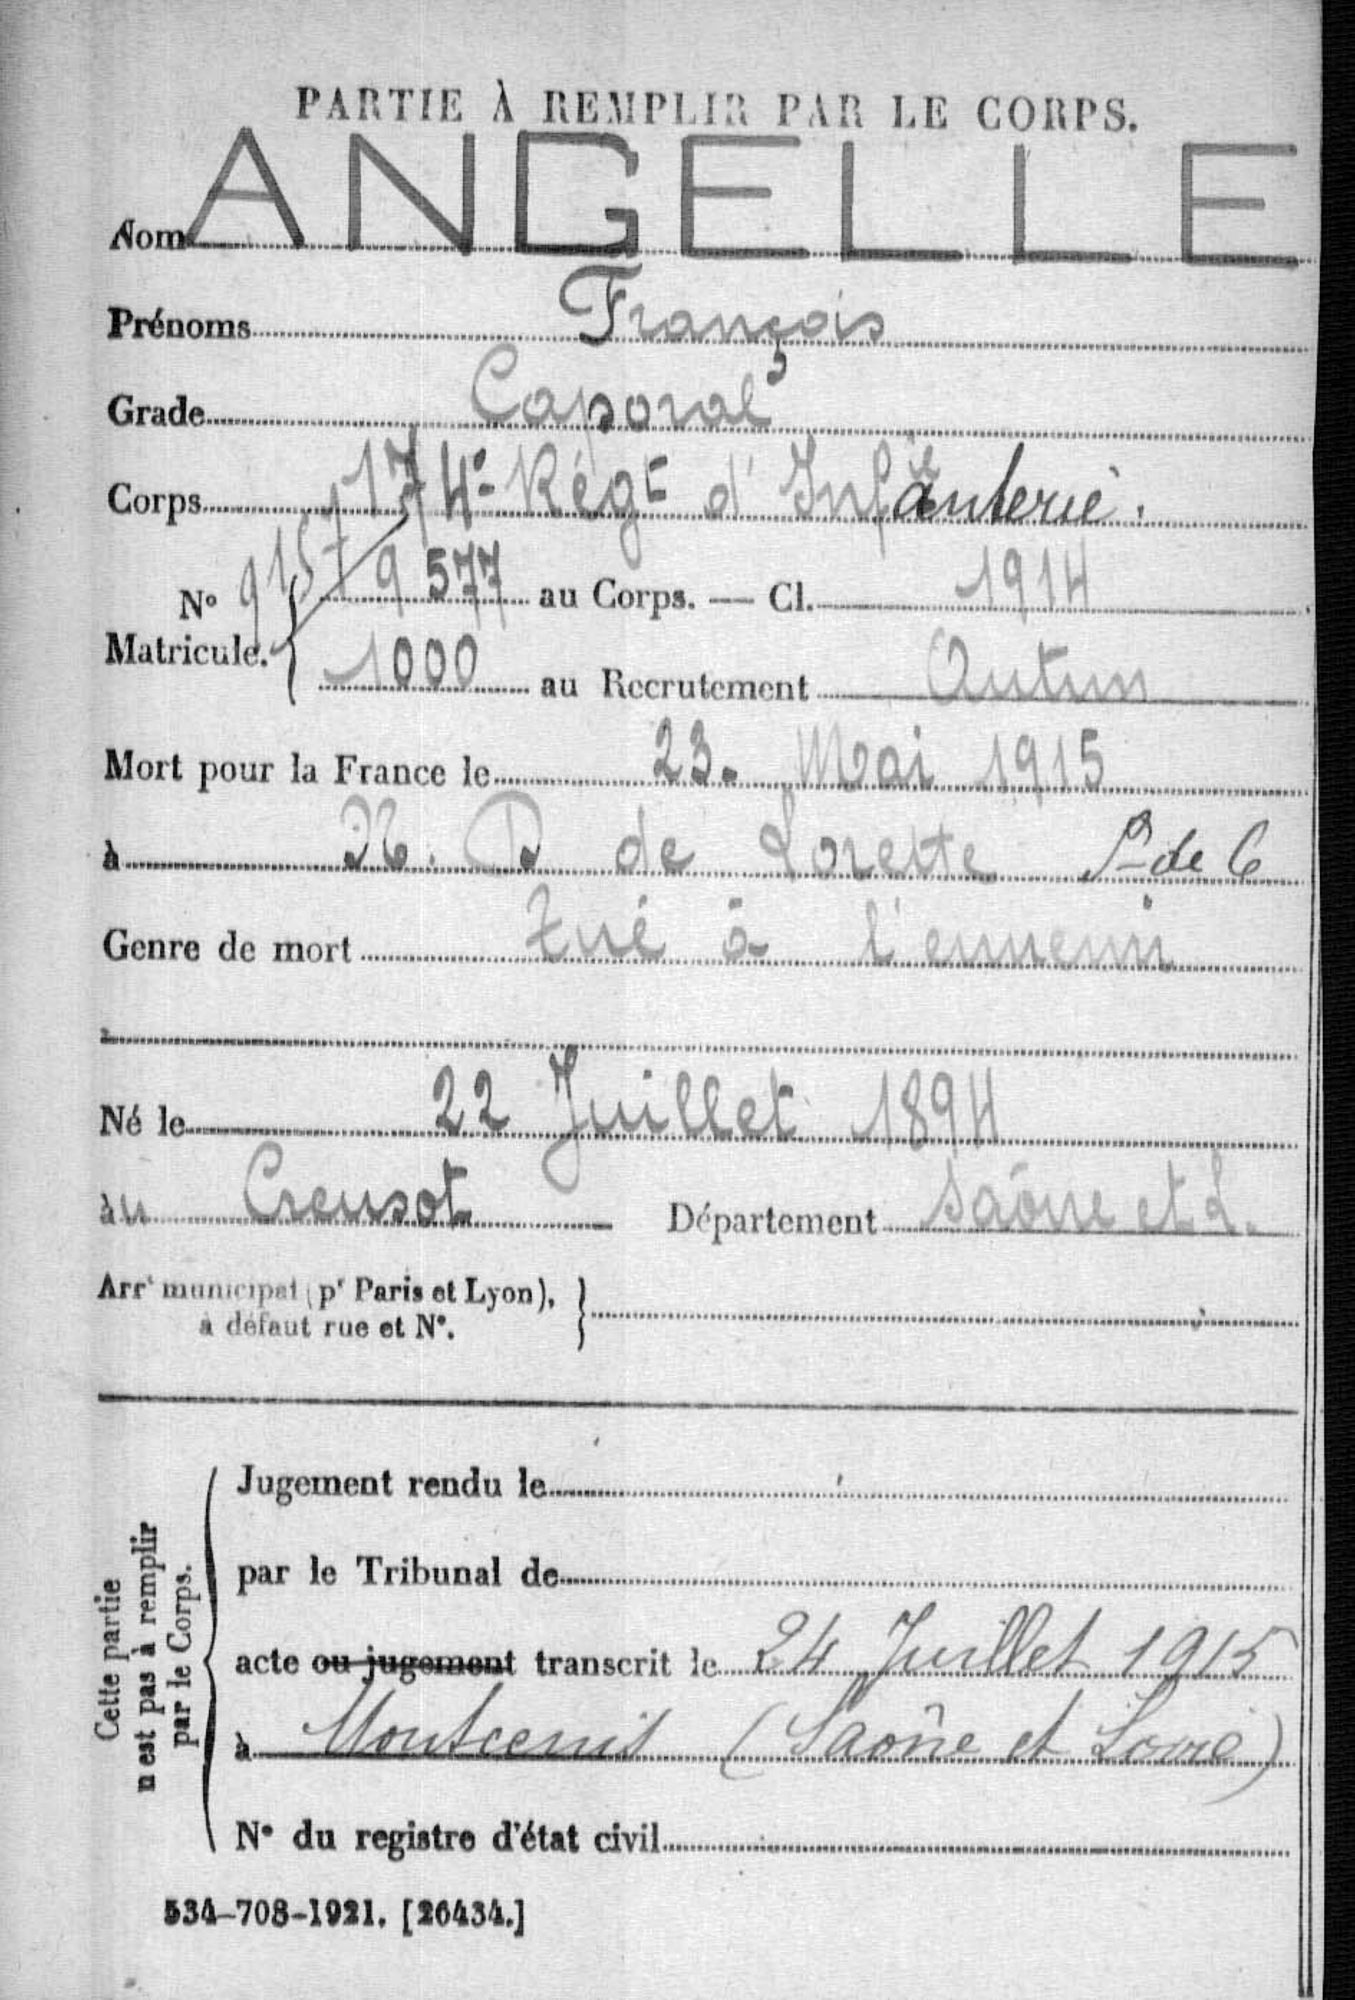 PARTIE À REMPLIR PAR LE CORPS.
Nom ANGELLE
Prénoms François
Grade Caporal
Corps 174e Régt d'Infanterie.
No 9157 9577 au Corps. — Cl. 1914
Matricule. 1000 au Recrutement Autun
Mort pour la France le 23. Mai 1915
à N. D de Lorette P de C
Genre de mort tué à l'ennemi
Né le 22 Juillet 1894
àu Creusot Département Saône et L.
Arrt municipal (pr Paris et Lyon),
à défaut rue et No.
Cette partie
n'est pas à remplir
par le Corps.
Jugement rendu le
par le Tribunal de
acte ou jugement transcrit le 24 Juillet 1915
à Montcenis (Saône et Loire)
No du registre d'état civil
534-708-1921. [26434.]